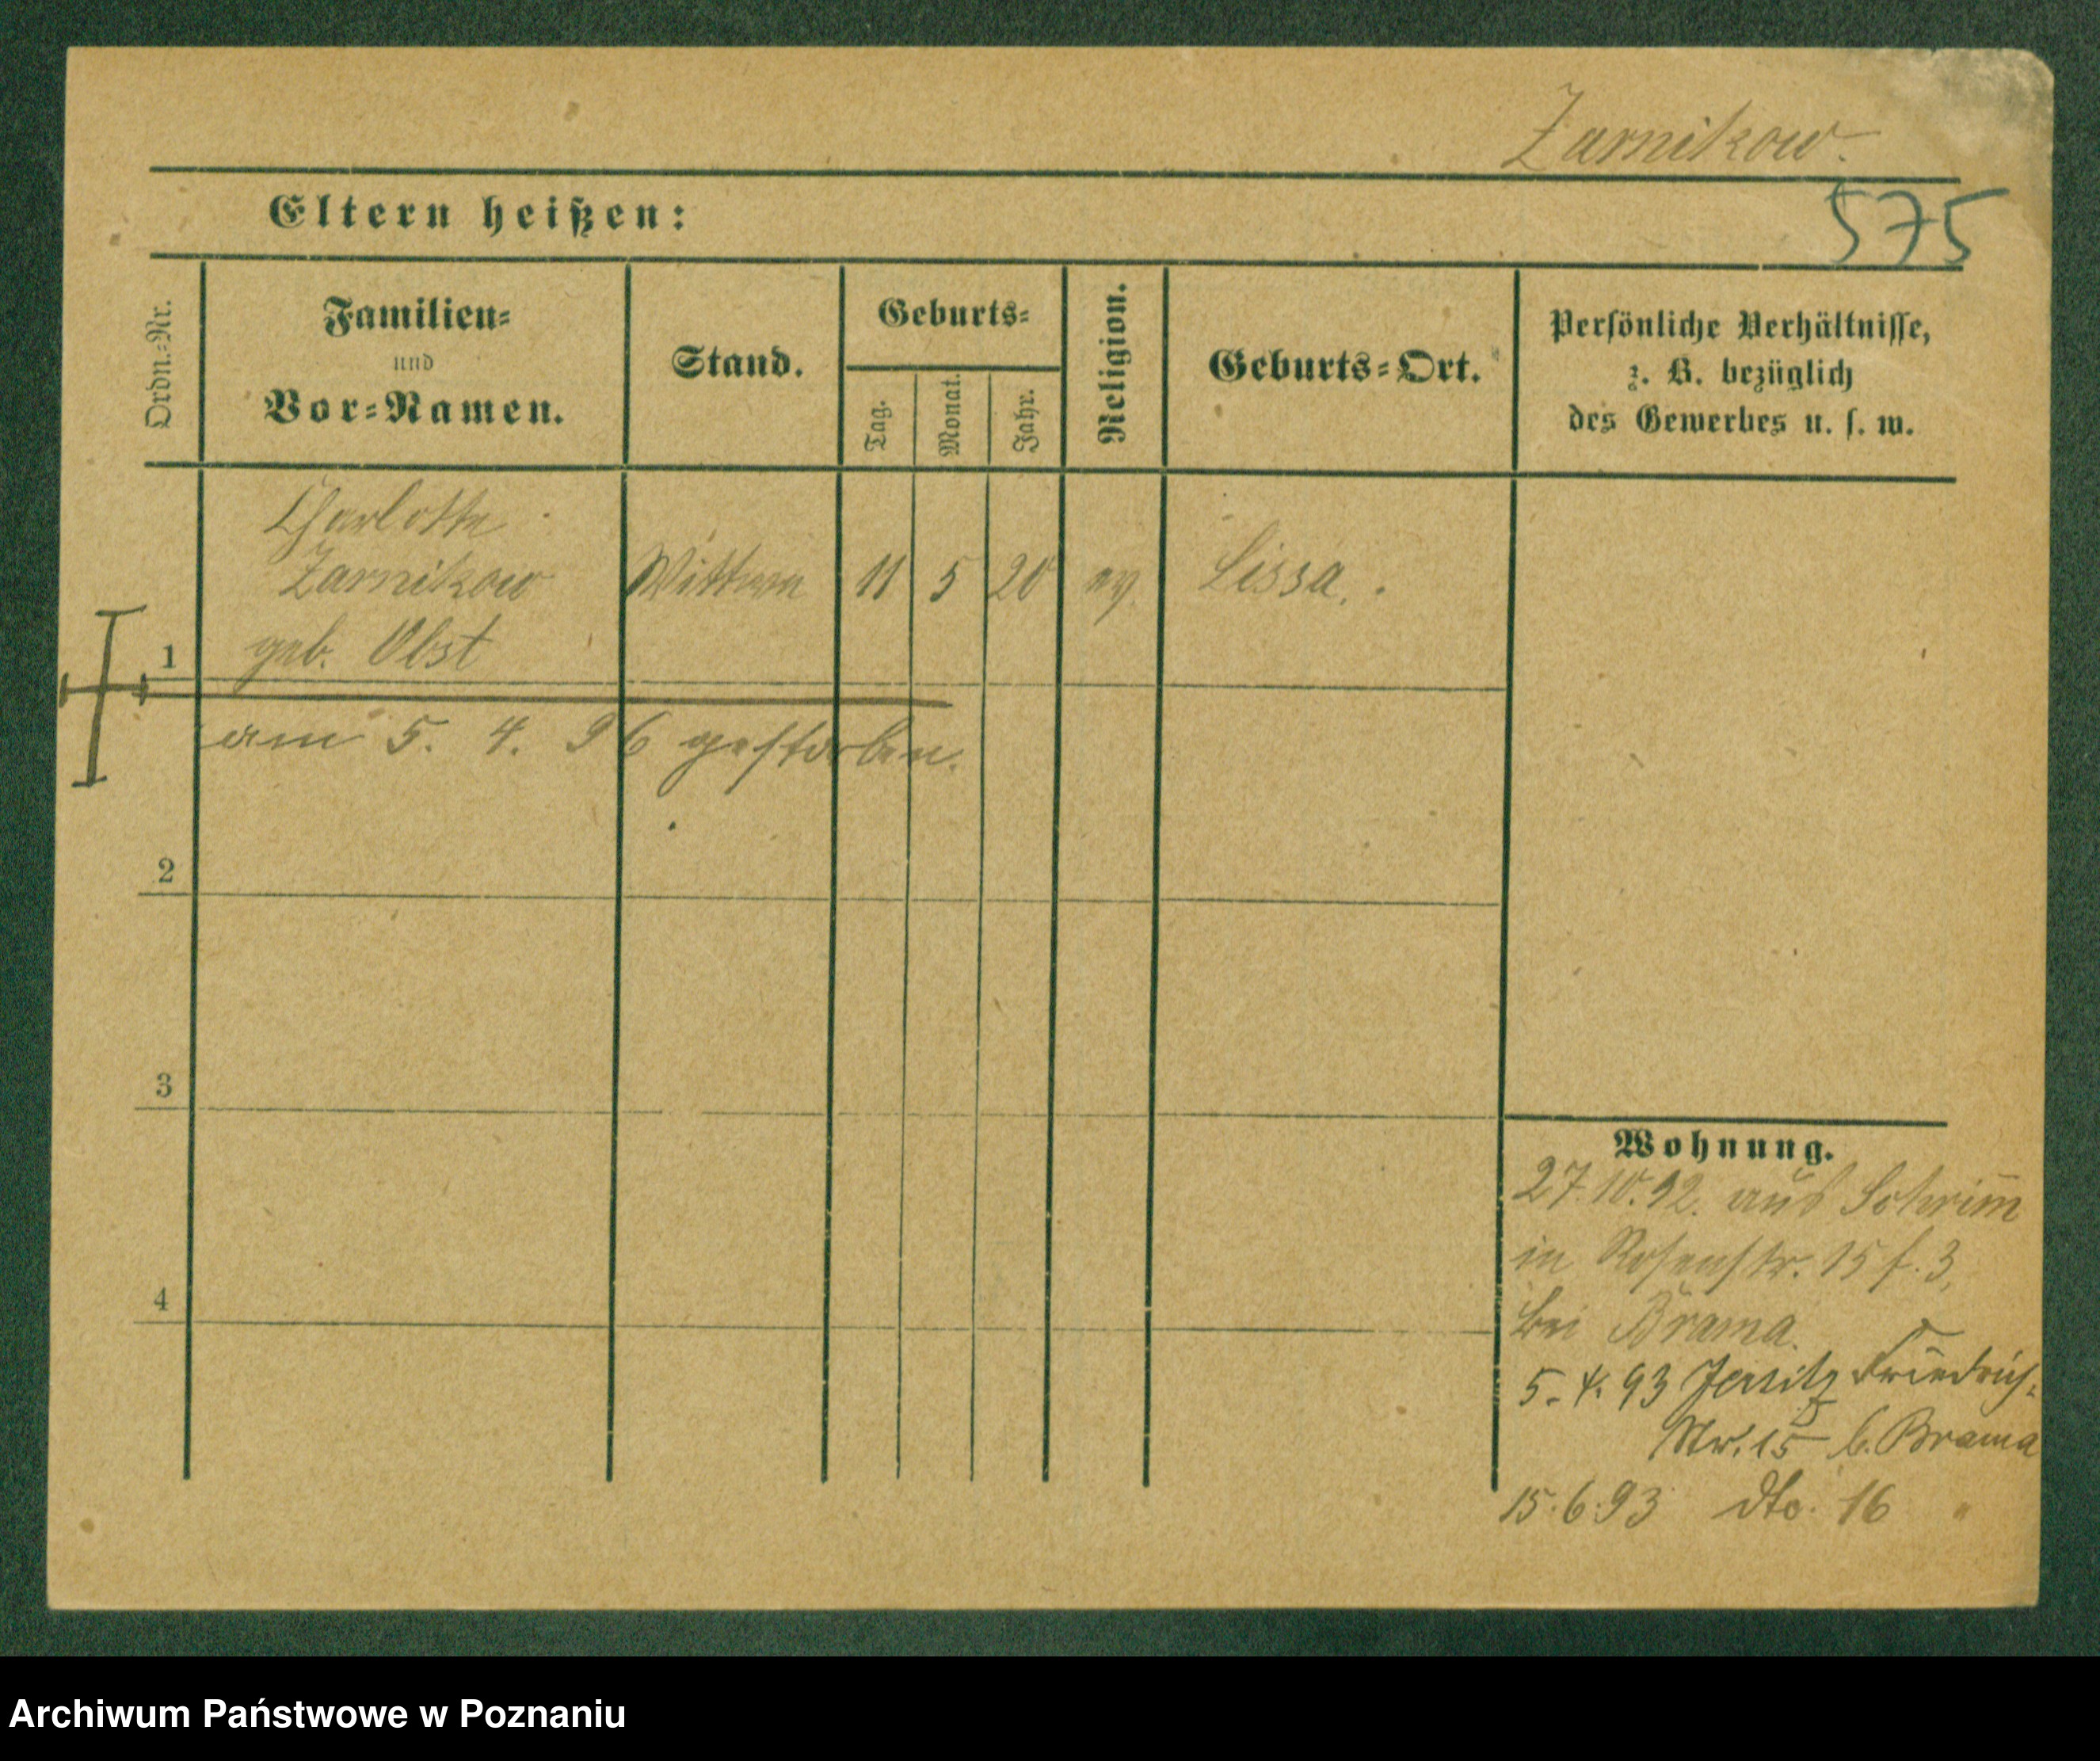 Zarnikow.
Eltern heißen:
575
Ordn.-Nr.
Familien-
und
Vor-Namen.
Stand.
Geburts-
Tag.
Monat.
Jahr.
Religion.
Geburts-Ort.
Persönliche Verhältnisse,
z. B. bezüglich
des Gewerbes u. s. w.
Charlotte
Zarnikow Wittwe 11 5 20 ev. Lissa.
geb. Obst
1
am 5. 4. 96 gestorben.
2
3
4
Wohnung.
27.10.92. aus Schrim̄
in Rosenstr. 15 f. 3,
bei Brama.
5. 4. 93 Jersitz Friedrich-
Str. 15 b. Brama
15.6.93 dto. 16 "
Archiwum Państwowe w Poznaniu